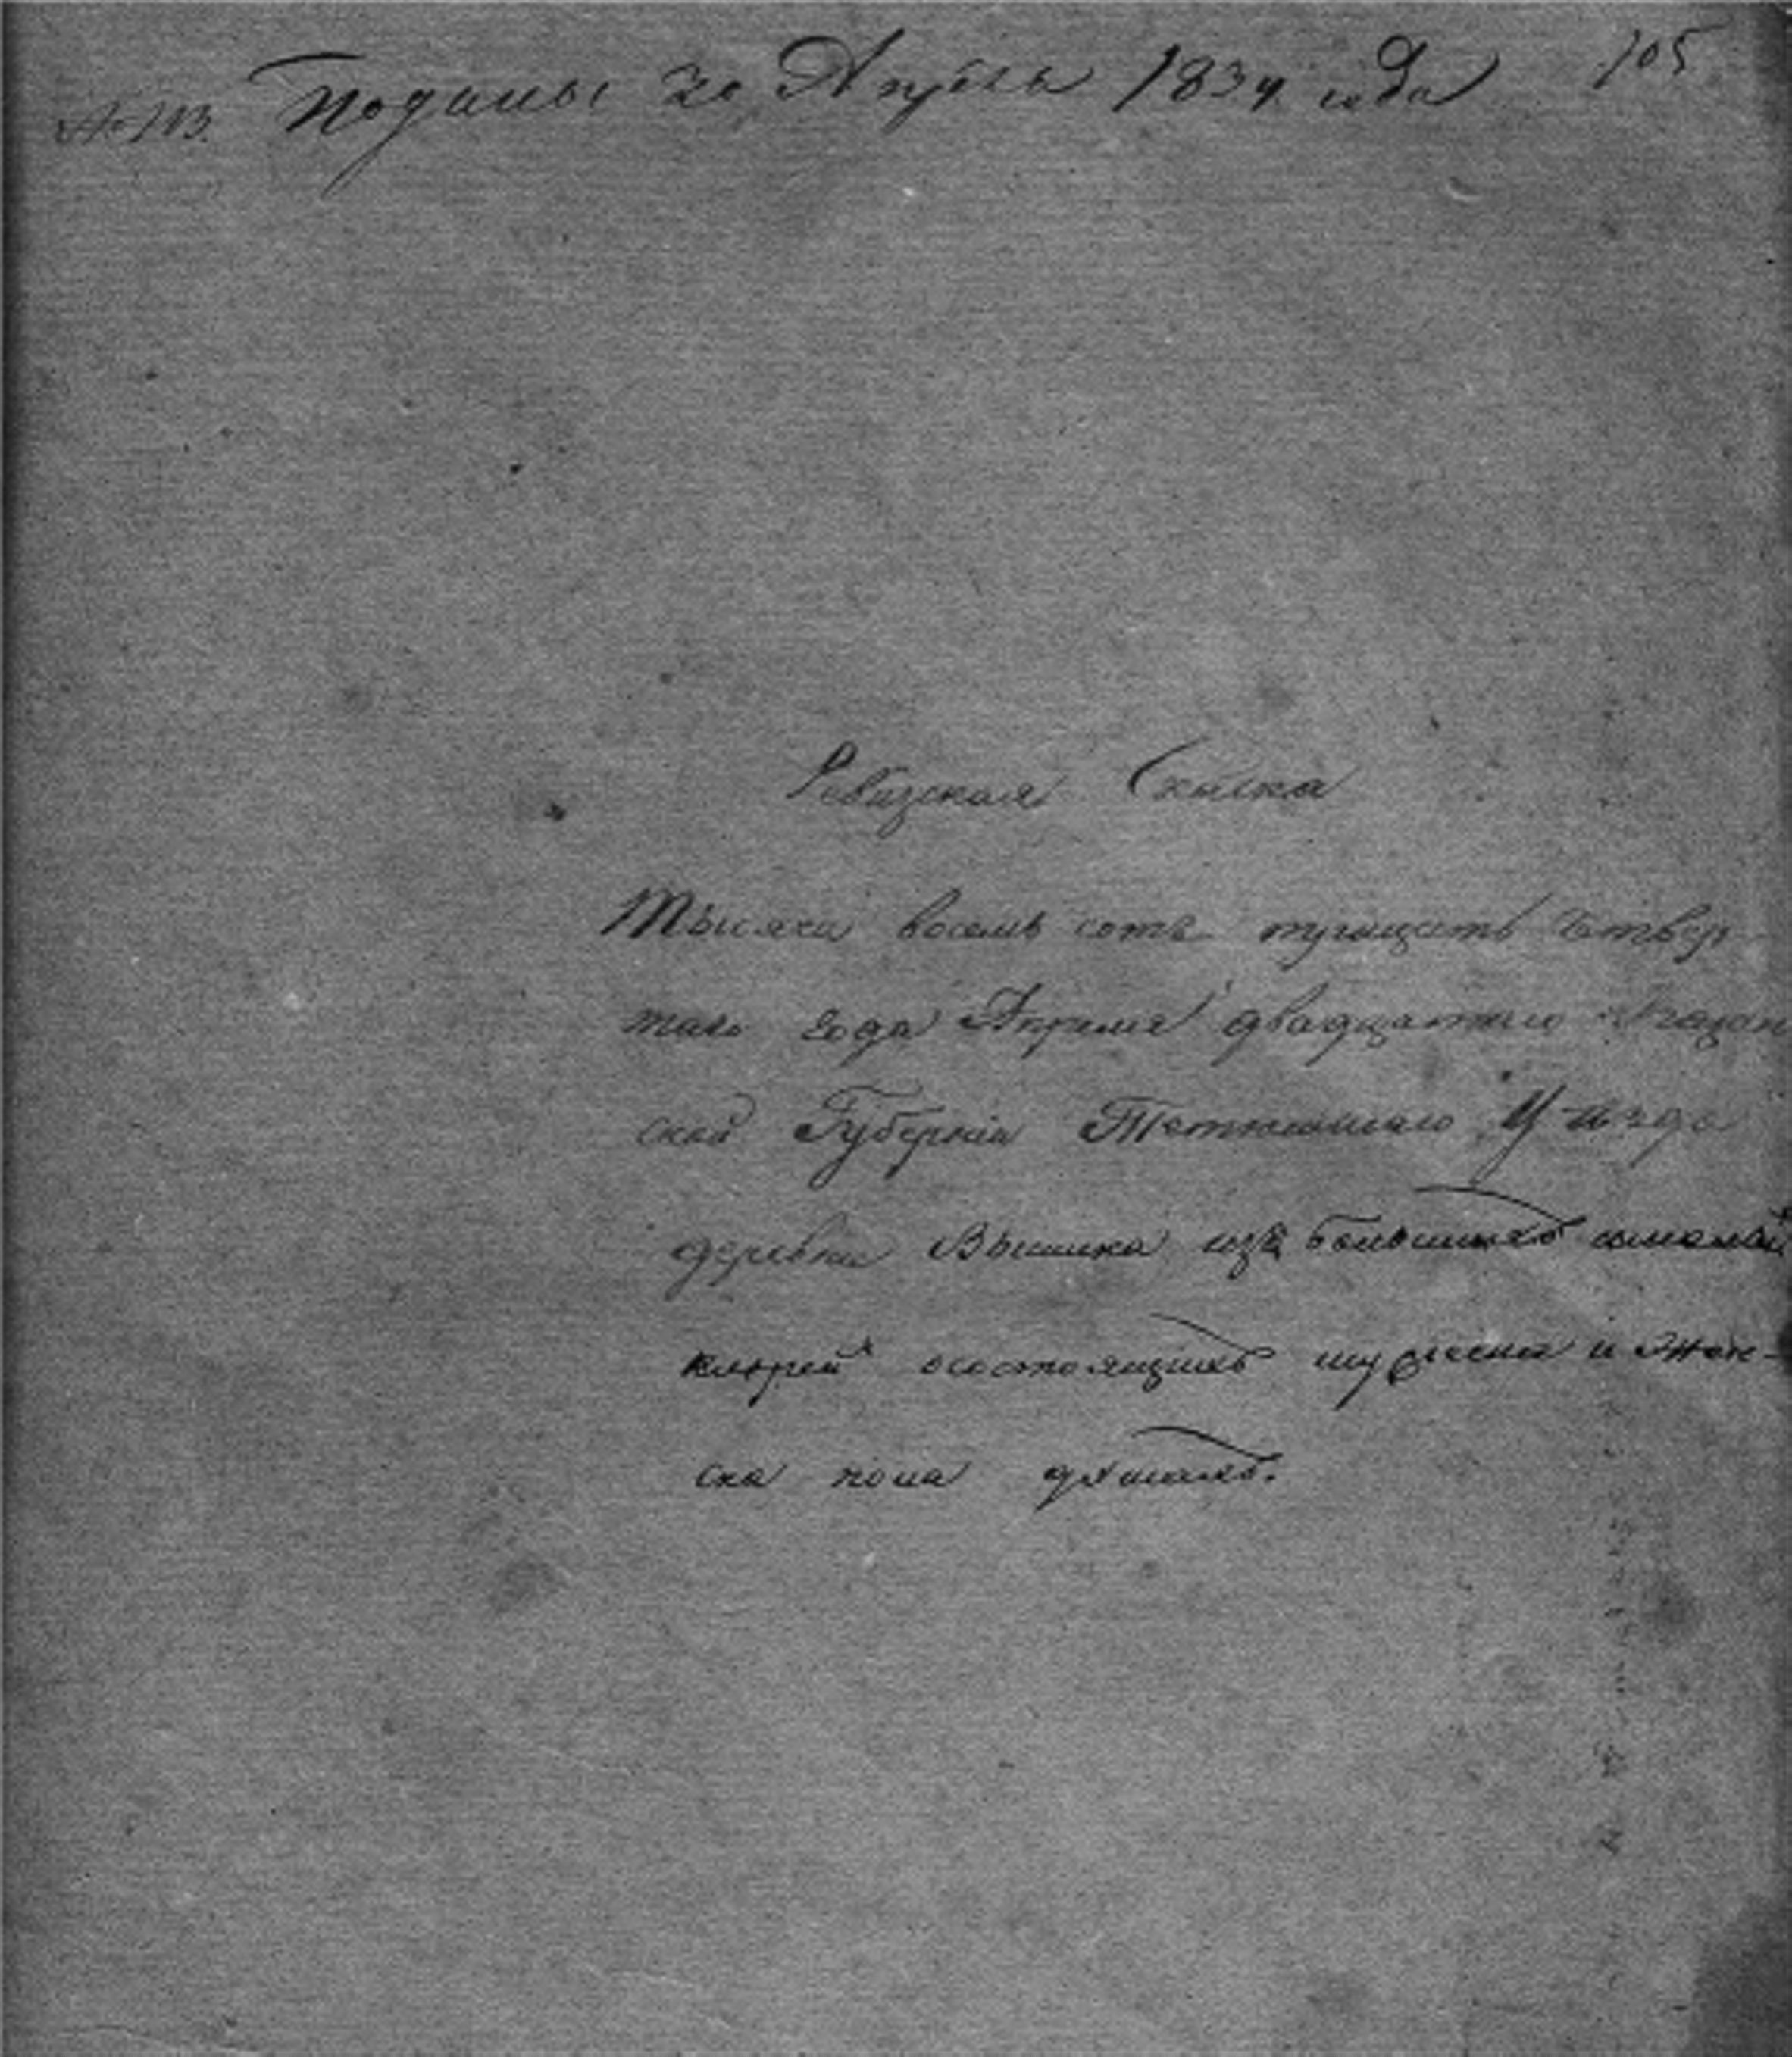 105
№ 113. Поданы 20 Апрѣля 1834 года
Ревизская Сказка
Тысяча восемь сотъ тритцать четвер
таго года Апреля двадцатаго Казан
ской Губерніи Тетюшскаго Уѣзда
деревни Вышка изъ
состоящихъ мужеска и жен-
ска пола душахъ.